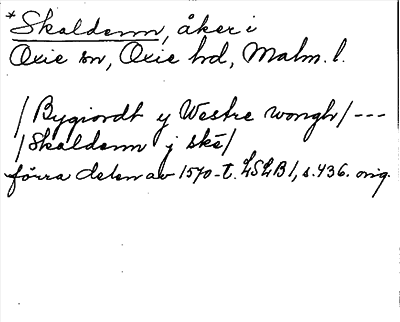 *Skaldenn, åker i
Oxie sn, Oxie hd, Malm. l.
/Bygiordt y Westre wongh/---
/Skaldenn j skě/
förra delen av 1570-t. LSLB 1, s. 436. orig.